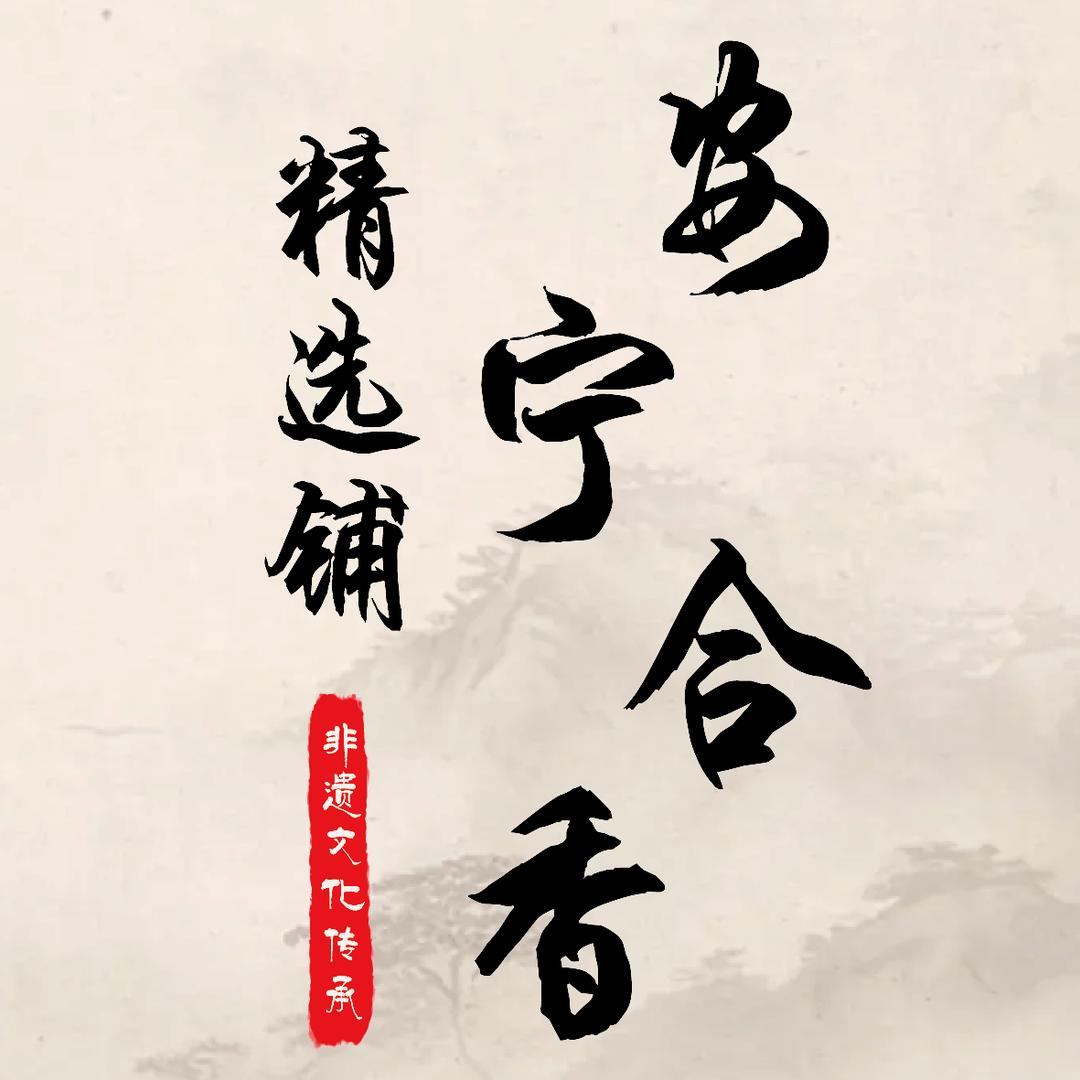 安宁合香
精选铺
非遗文化传承